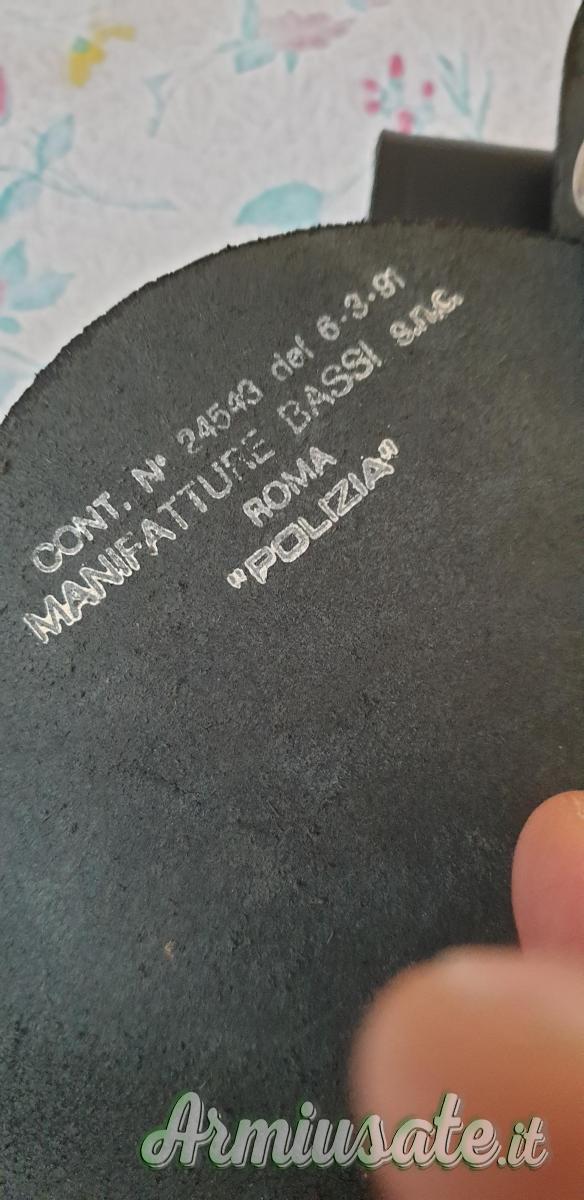 CONT. N° 24543 del 6-3-91
MANIFATTURE BASSI s.n.c.
ROMA
"POLIZIA"
Armiusate.it